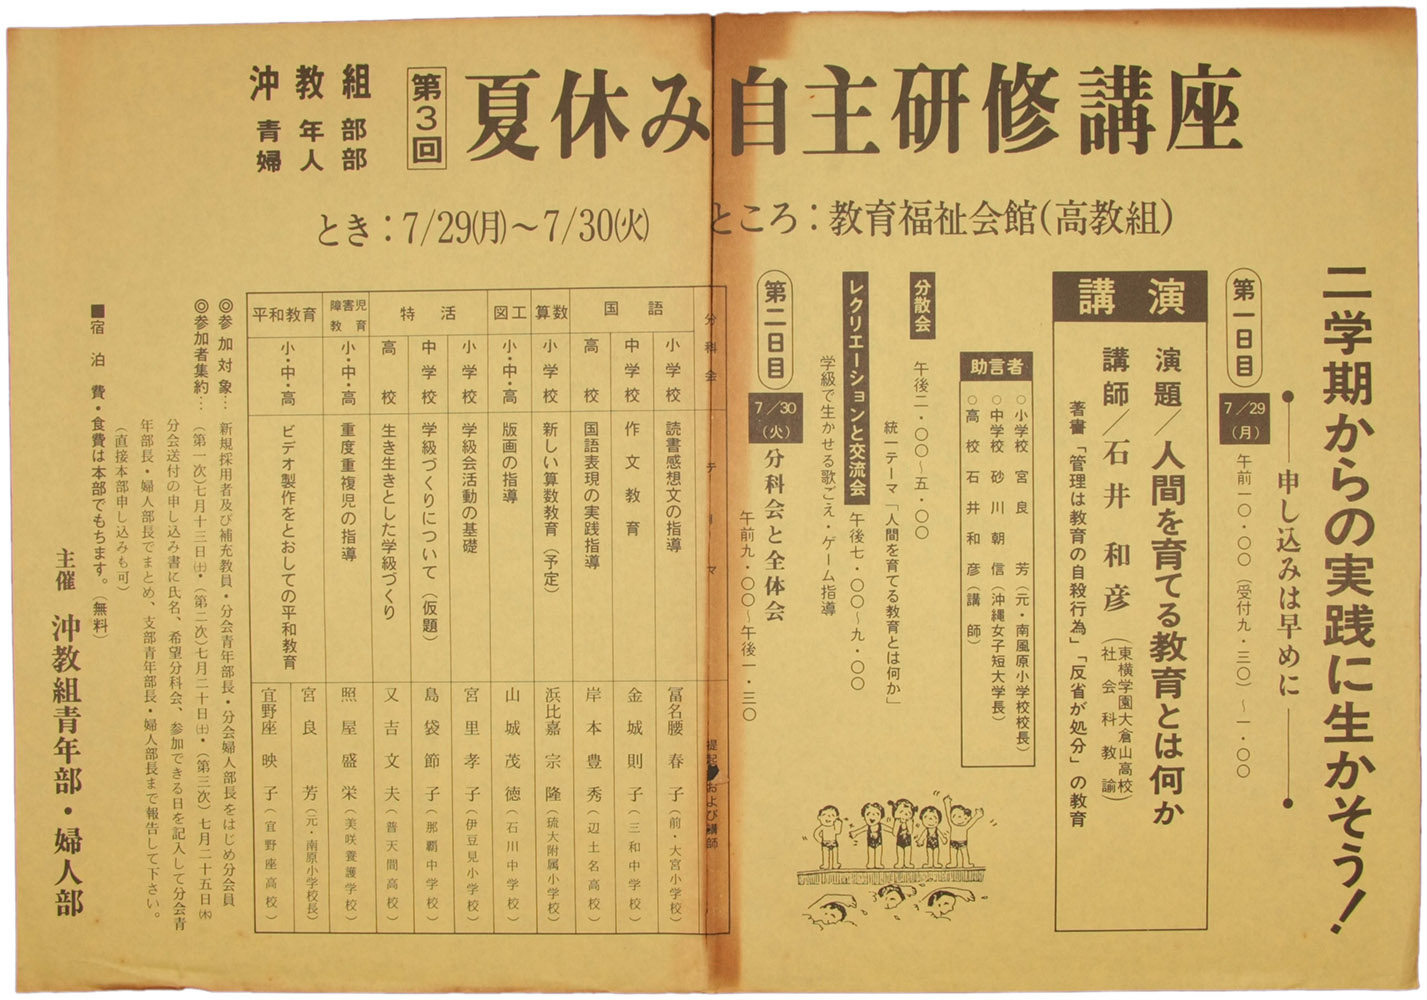 沖教組
青年部
婦人部
第3回
夏休み自主研修講座
とき:7/29(月)～7/30(火)
ところ:教育福祉会館(高教組)
二学期からの実践に生かそう!
申し込みは早めに
第一日目
7/29
(月)
午前一〇・〇〇(受付九・三〇)～一・〇〇
講演
演題/人間を育てる教育とは何か
講師/石井和彦
(東横学園大倉山高校
社会科教諭)
著書「管理は教育の自殺行為」「反省が処分」の教育
助言者
○小学校 宮良 芳(元・南風原小学校校長)
○中学校 砂川朝信(沖縄女子短大学長)
○高校 石井和彦(講師)
分散会
午後二・〇〇～五・〇〇
統一テーマ「人間を育てる教育とは何か」
レクリエーションと交流会
午後七・〇〇～九・〇〇
学級で生かせる歌ごえ・ゲーム指導
第二日目
7/30
(火)
分科会と全体会
午前九・〇〇～午後一・三〇
分科会 テーマ 提起および講師
国語
小学校 読書感想文の指導 冨名腰春子(前・大宮小学校)
中学校 作文教育 金城則子(三和中学校)
高校 国語表現の実践指導 岸本豊秀(辺土名高校)
算数
小学校 新しい算数教育(予定) 浜比嘉宗隆(琉大附属小学校)
図工
小・中・高 版画の指導 山城茂徳(石川中学校)
特活
小学校 学級会活動の基礎 宮里孝子(伊豆見小学校)
中学校 学級づくりについて(仮題) 島袋節子(那覇中学校)
高校 生き生きとした学級づくり 又吉文夫(普天間高校)
障害児教育
小・中・高 重度重複児の指導 照屋盛栄(美咲養護学校)
平和教育
小・中・高 ビデオ製作をとおしての平和教育 宮良 芳(元・南原小学校長)
宜野座映子(宜野座高校)
◎参加対象… 新規採用者及び補充教員・分会青年部長・分会婦人部長をはじめ分会員
◎参加者集約… (第一次)七月十三日(土)・(第二次)七月二十日(土)・(第三次)七月二十五日(木)
分会送付の申し込み書に氏名、希望分科会、参加できる日を記入して分会青
年部長・婦人部長でまとめ、支部青年部長・婦人部長まで報告して下さい。
(直接本部申し込みも可)
■宿泊費・食費は本部でもちます。(無料)
主催 沖教組青年部・婦人部